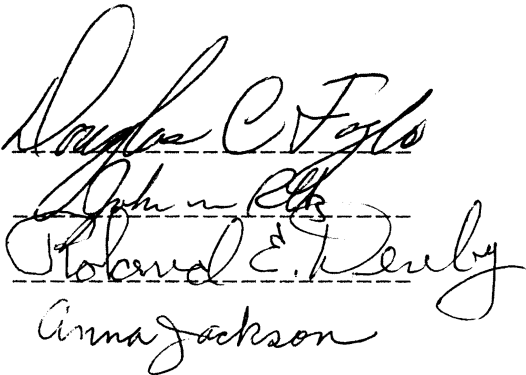 Douglas C. Foglo
John
E. Dereby
Anna Jackson